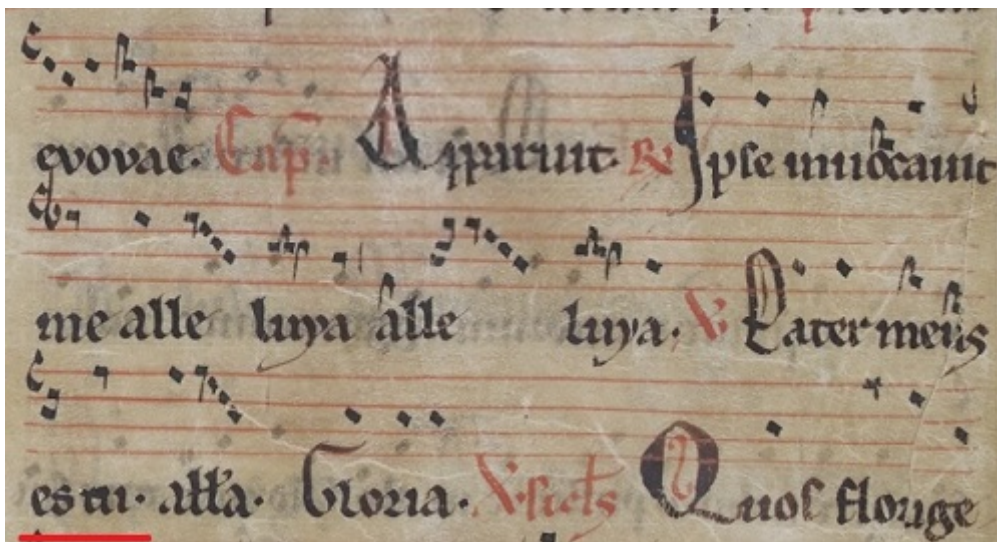 evovae. Cap. Apparuit. R Ipse invocavit
me alle luya alle luya. V Pater meus
es tu. alla. Gloria. V. Quos flo